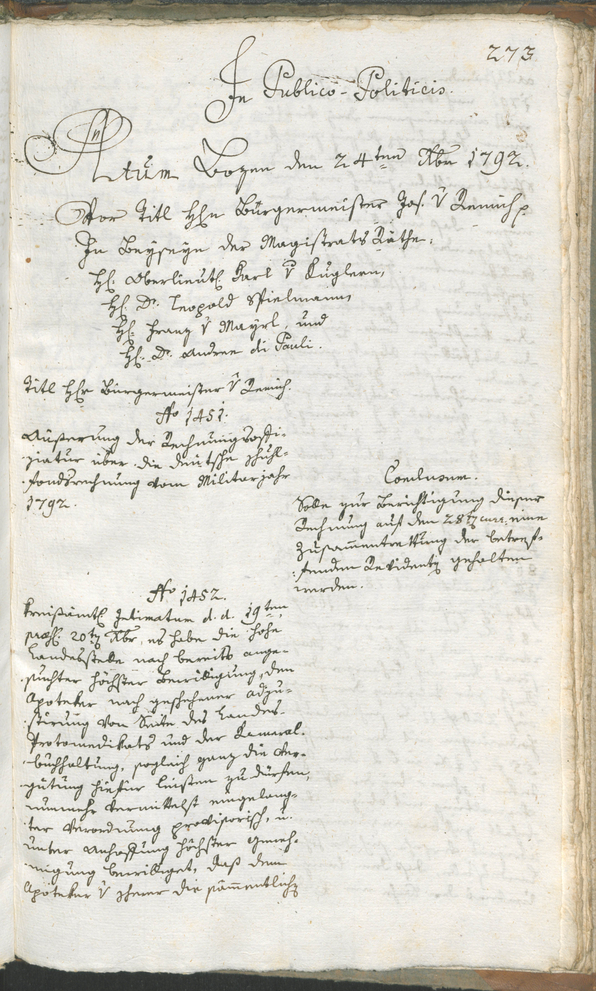 273
In Publico-Politicis.
Actum Bozen den 24ten Xbr 1792.
Vor Titl Hhn Bürgermeister Jos. v Remich
In Beyseyn der Magistrats Räthe.
H. Oberlieut. Karl v Kuglern,
H. Dr. Leopold Spielmann,
H. Franz v Mayrl, und
H. Dr. Andree di Pauli.
Titl Hhr Bürgermeister v Remich.
No 1451.
Äußerung der Rechnungsoffi-
ziatur über die deutsche Schuhl-
fondsrechnung vom Militarjahr
1792.
Conclusum.
Solle zur Berichtigung dieser
Rechnung auf den 28 eine
Zusammentrettung der betref-
fenden gehalten
werden.
No 1452.
Kreisämtl. Intimatum d. d. 19ten
20 Xbr, es habe die hohe
Landesstelle nach bereits ange-
suchter höchster Bewilligung, den
Apoteker nach geschehener adju-
stirung von Seite des Landes
Protomedikats und der Kameral-
buchhaltung, sogleich ganz die Ver-
gütung hiefür leisten zu dürfen,
nunmehr vermittelst eingelang-
ter Verordnung provisorisch, u.
unter Anhoffung höchster Geneh-
migung bewilliget, daß dem
Apoteker v die sämmentliche